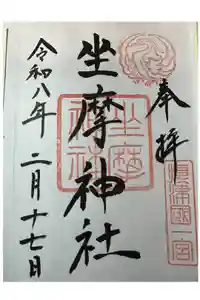 奉拝
坐摩神社
令和八年二月十七日
坐摩神社
摂津國一宮